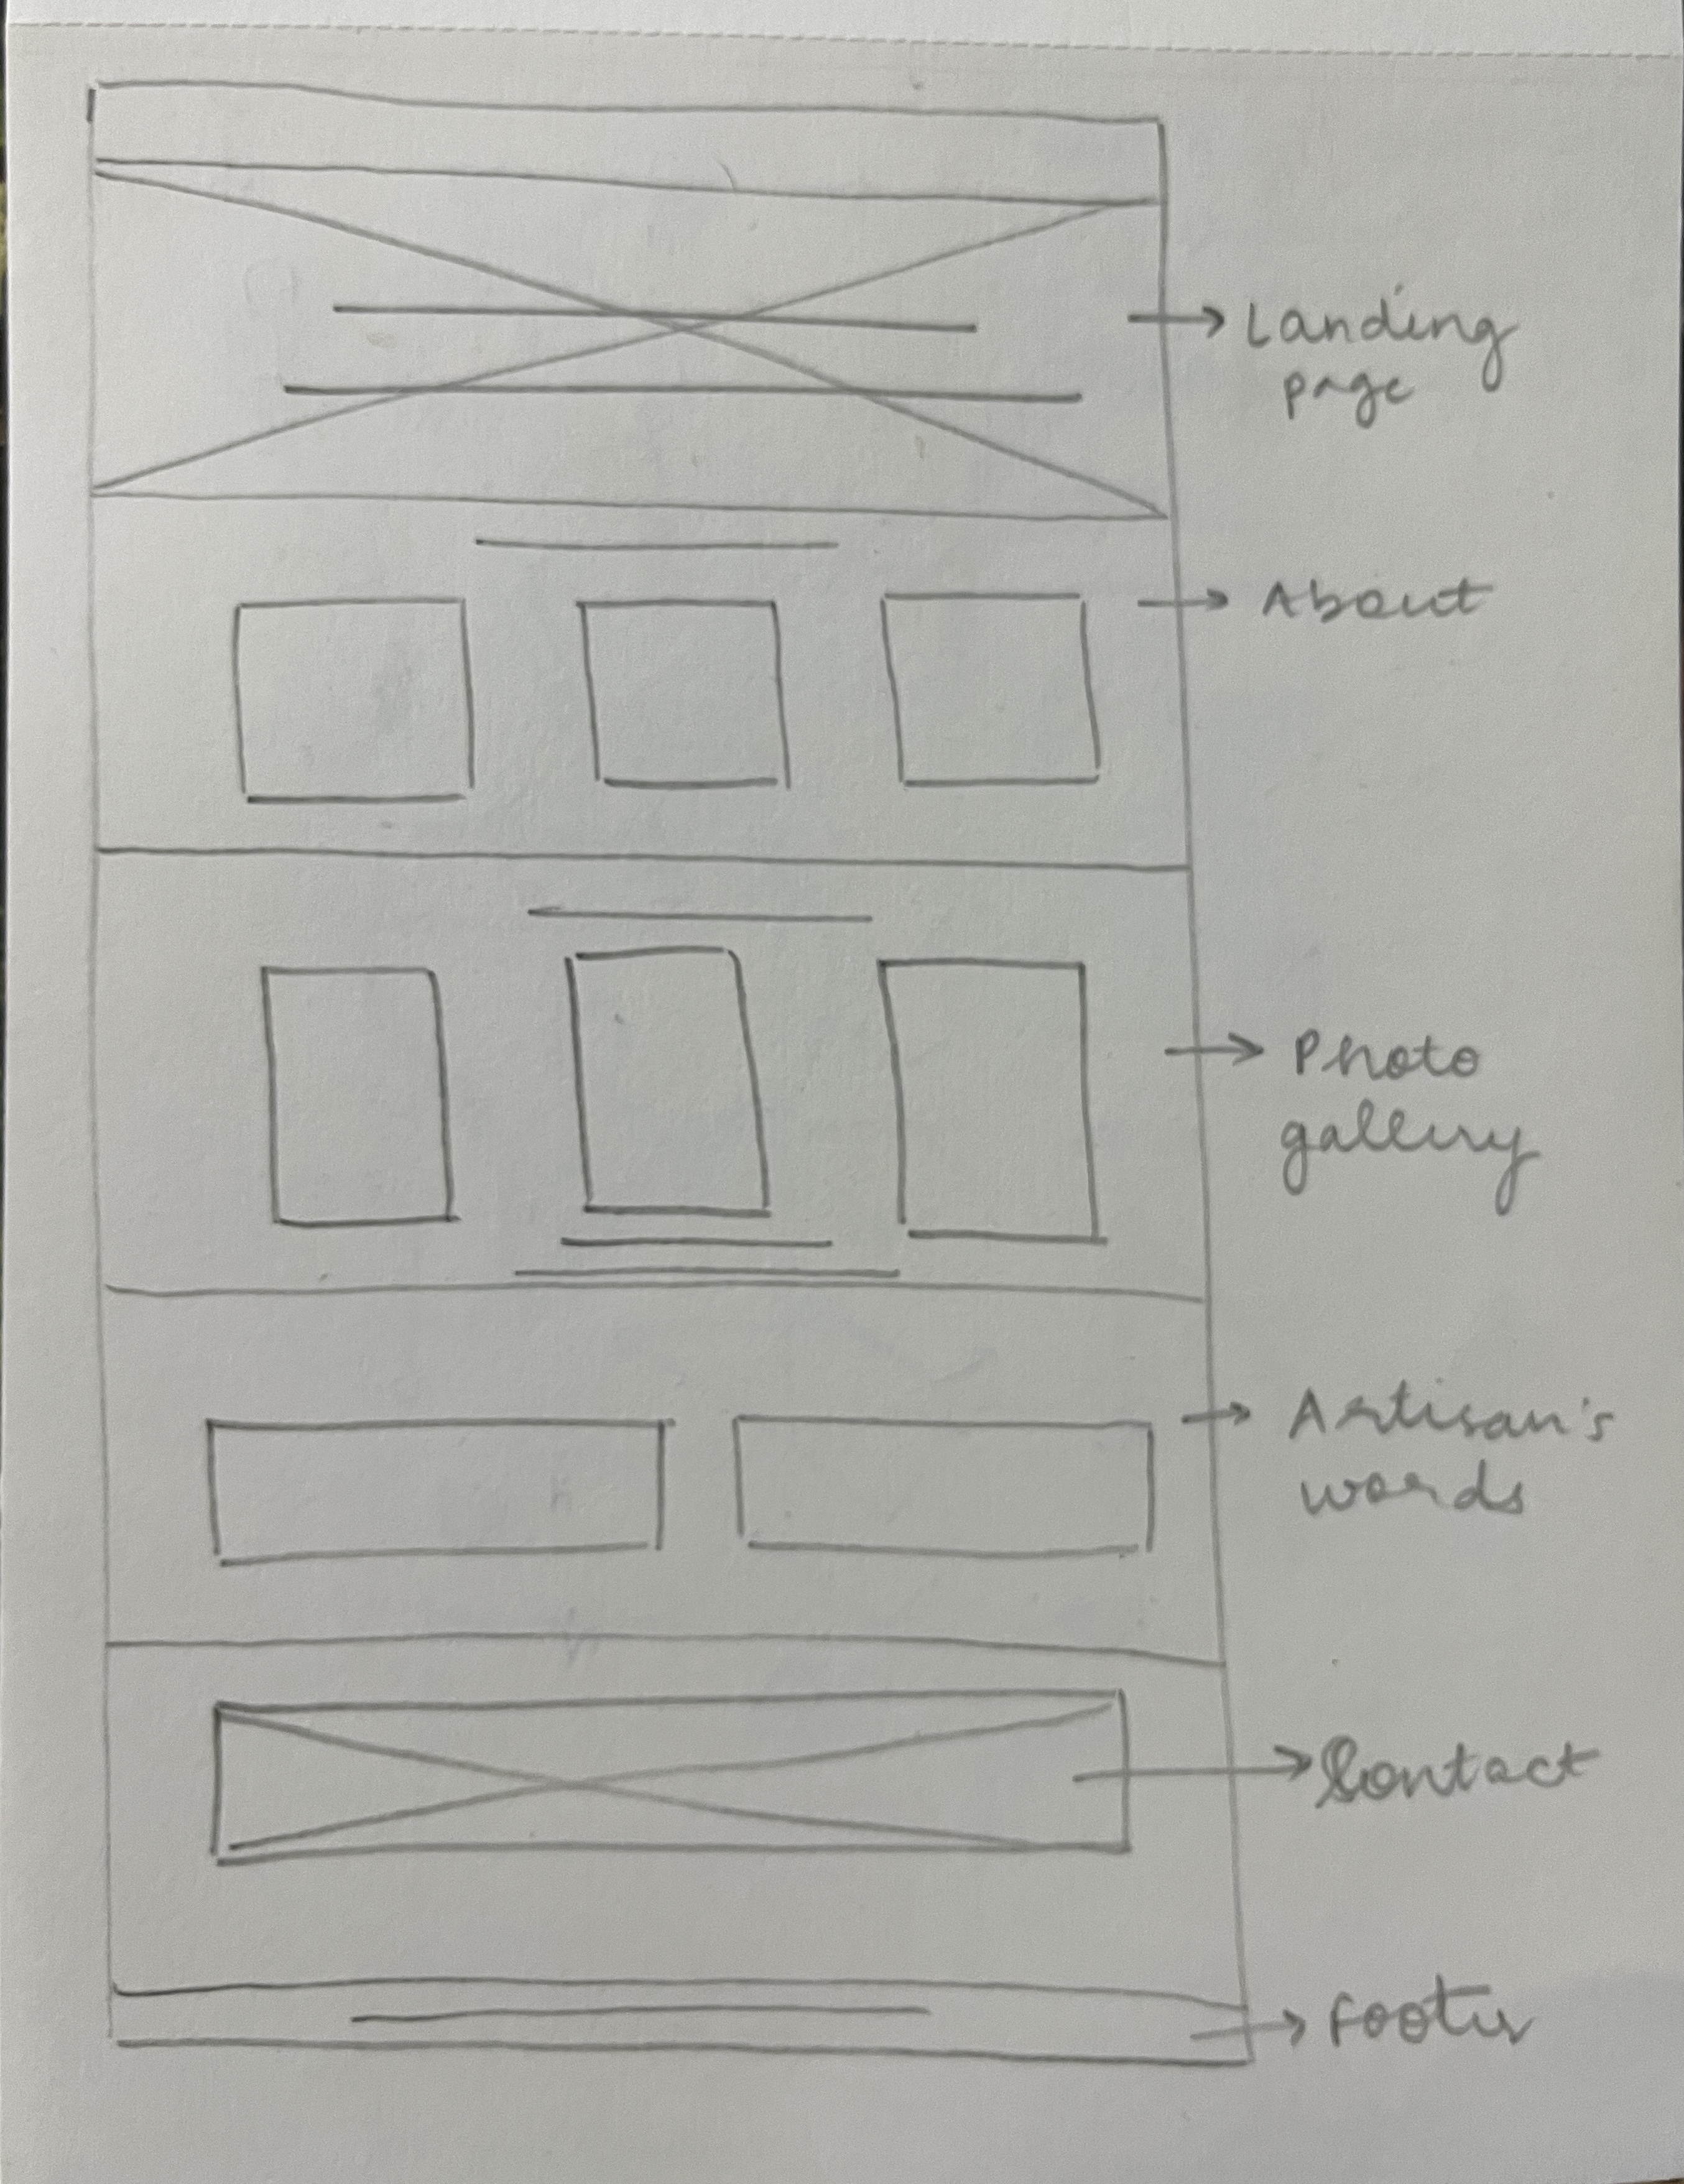 Landing
page
About
Photo
gallery
Artisan's
words
Contact
Footer